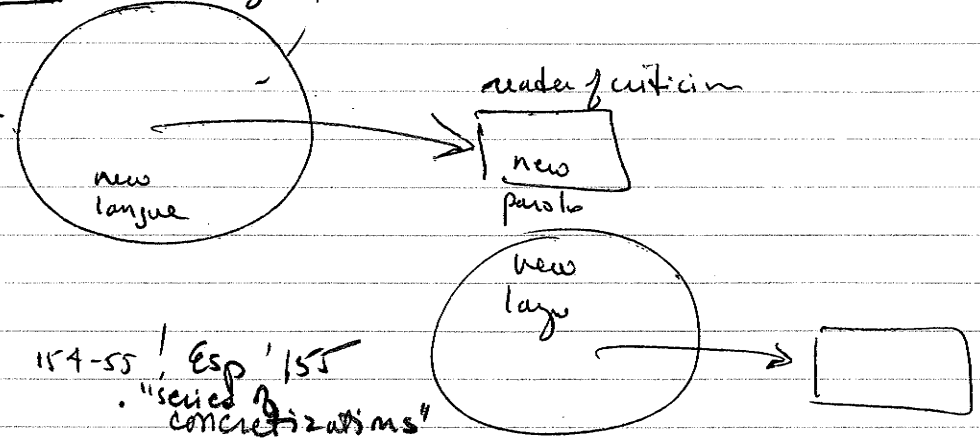 reader of criticism
new
langue
new
parole
new
langue
154-55 ! Esp 155
. "series of
concretizations"